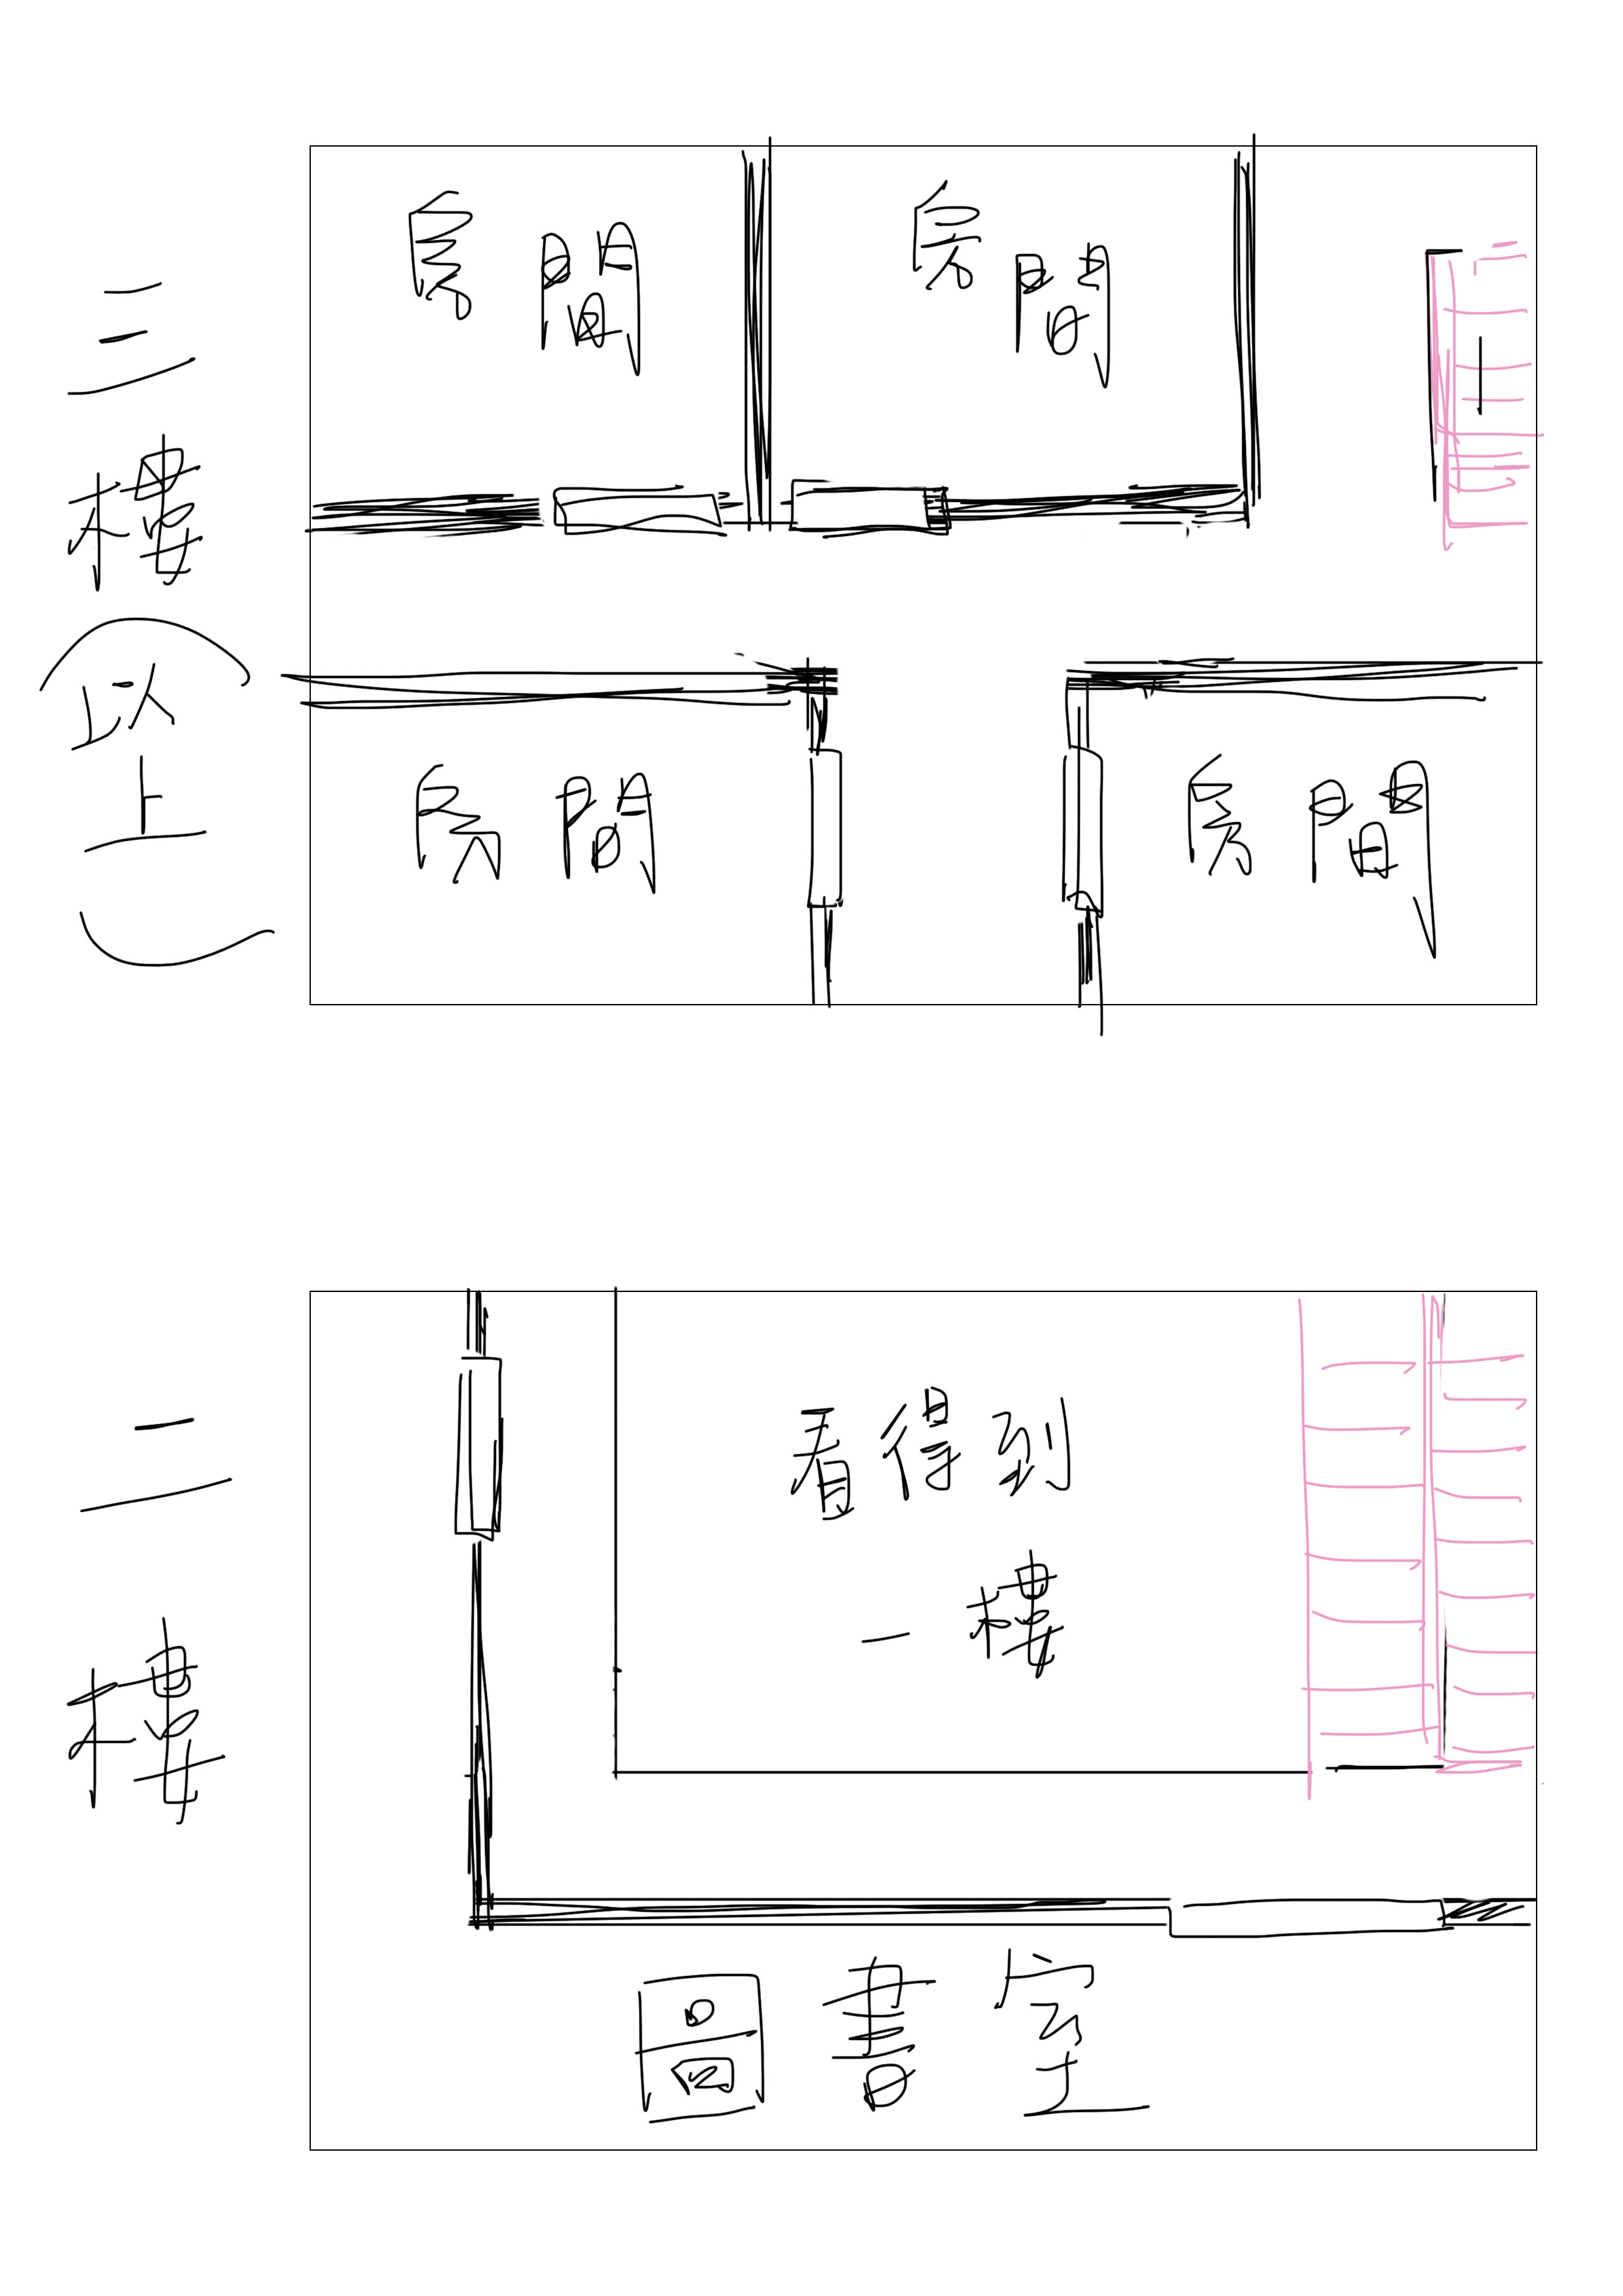 三樓(以上)
房間
房間
房間
房間
二樓
看得到
一樓
圖書室